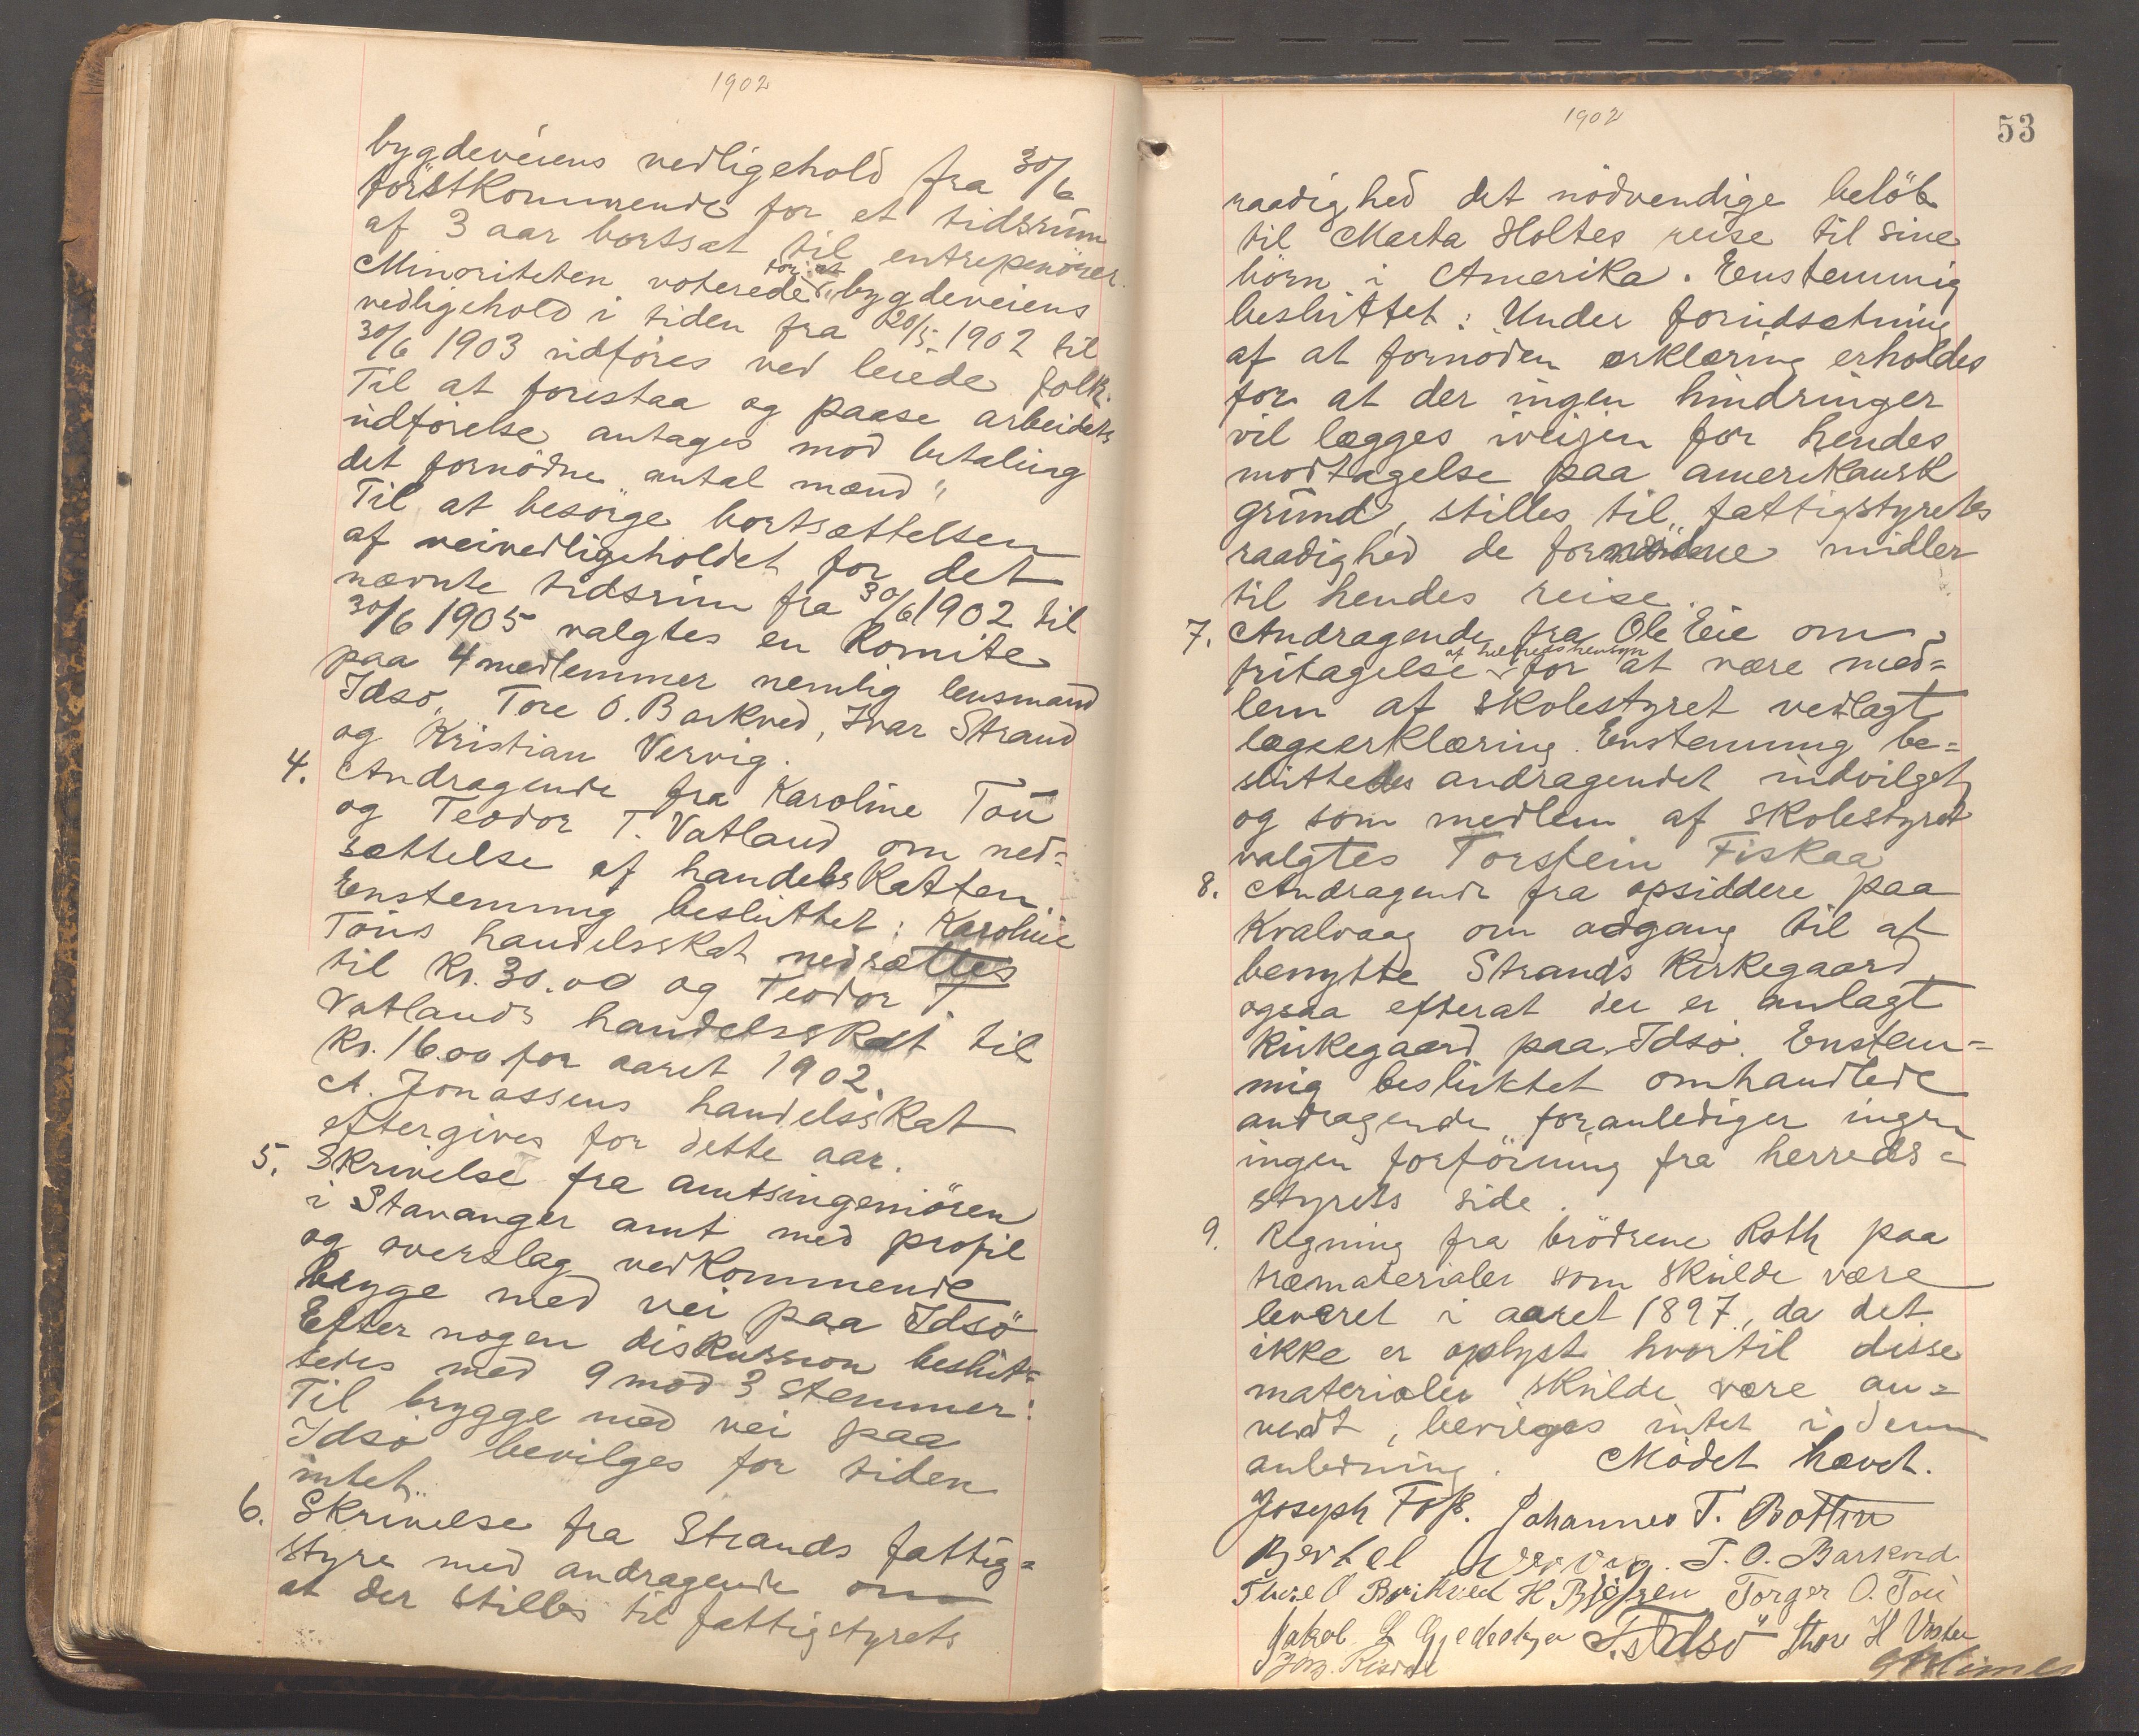 1902
bygdeveiens vedligehold fra 30/6
förstkommende for et tidsrum
af 3 aar bortsat til entrepenörer.
Minoriteten voterede for at "bygdeveiens
vedligehold i tiden fra 20/5 1902 til
30/6 1903 udföres ved leiede folk.
Til at forestaa og paase arbeidets
udförelse antages mod betaling
det fornödne antal mænd"
Til at besörge bortsættelsen
af veivedligeholdet for det
nævnte tidsrum fra 30/6 1902 til
30/6 1905 valgtes en komite
paa 4 medlemmer nemlig lensmand
Idsö, Tore O. Barkved, Ivar Strand
og Kristian Vervig.
4. Andragende fra Karoline Tou
og Teodor T. Vatland om ned=
sættelse af handelsskatten.
Enstemmig besluttet: Karoline
Tous handelsskat nedsættes
til Kr. 30.00 og Teodor T
Vatlands handelsskat til
Kr. 16.00 for aaret 1902.
A. Jonassens handelsskat
eftergives for dette aar.
5. Skrivelse fra amtsingeniören
i Stavanger amt med profil
og overslag vedkommende
brygge med vei paa Idsö
Efter nogen diskussion beslut=
tedes med 9 mod 3 stemmer:
Til brygge med vei paa
Idsö bevilges for tiden
intet.
6. Skrivelse fra Strands fattig=
styre med andragende om
at der stilles til fattigstyrets
1902
53
raadighed det nödvendige belöb
til Marta Holtes reise til sine
börn i Amerika. Enstemmig
besluttet: Under forudsætning
af at fornöden erklæring erholdes
for at der ingen hindringer
vil lægges iveijen for hendes
modtagelse paa amerikansk
grund, stilles til fattigstyrets
raadighed de fornödne midler
til hendes reise.
7. Andragende fra Ole Eie om
fritagelse af helbredshensyn for at være med=
lem af skolestyret vedlagt
lægeerklæring. Enstemmig be=
sluttedes andragendet indvilget
og som medlem af skolestyret
valgtes Torstein Fiskaa
8. Andragende fra opsiddere paa
Kvalvaag om adgang til at
benytte Strands Kirkegaard
ogsaa efterat der er anlagt
Kirkegaard paa Idsö. Enstem=
mig besluktet omhandlede
andragende foranlediger ingen
ingen forföining fra herreds=
styrets side.
9. Regning fra brödrene Roth paa
træmaterialer som skulde være
leveret i aaret 1897, da det
ikke er oplyst hvortil disse
materialer skulde være an=
vendt, bevilges intet i den
anledning. Mödet hævet.
Joseph Foss. Johannes T. Bottin
Bertel Vervig. T. O. Barkved
O H Torger O. Tou
Jakob Idsö Thore H